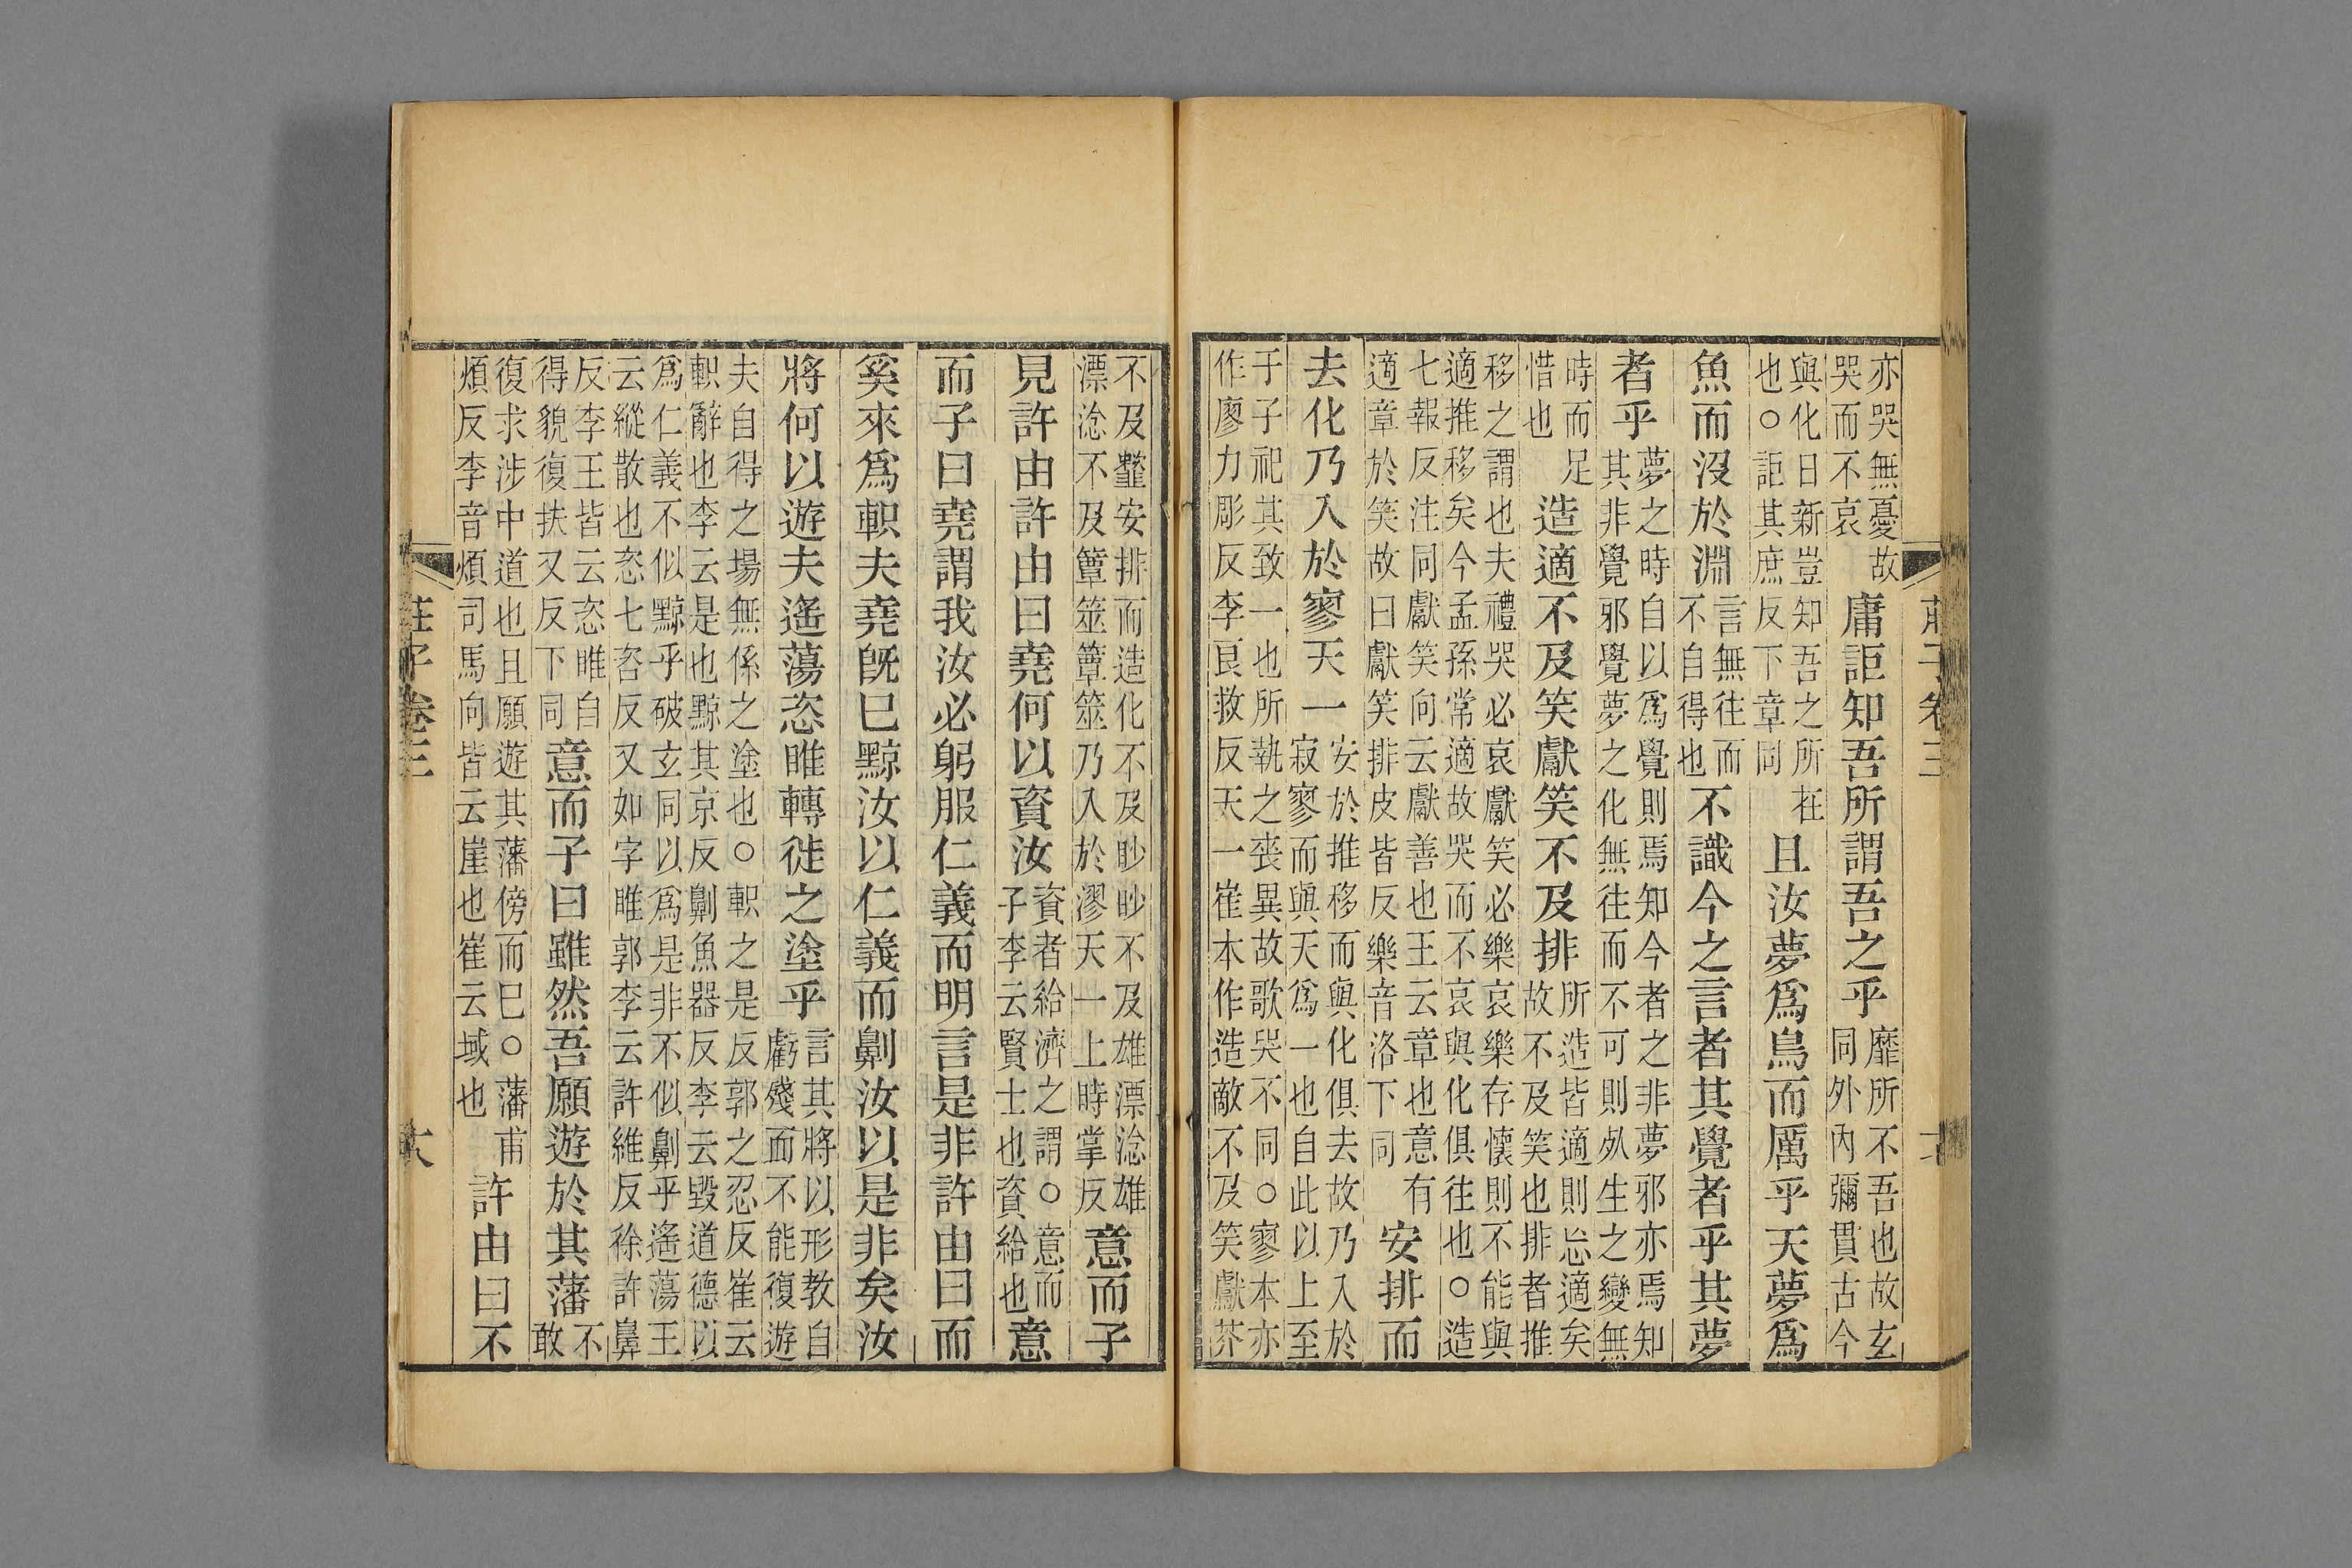 亦哭無憂故哭而不哀庸詎知吾所謂吾之乎靡所不吾也故玄同外內彌貫古今
與化日新豈知吾之所在也○詎其庶反下章同且汝夢爲鳥而厲乎天夢爲
魚而沒於淵言無往而不自得也不識今之言者其覺者乎其夢
者乎夢之時自以爲覺則焉知今者之非夢邪亦焉知其非覺邪覺夢之化無往而不可則死生之變無
時而足惜也造適不及笑獻笑不及排所造皆適則忘適矣故不及笑也排者推
移之謂也夫禮哭必哀獻笑必樂哀樂存懷則不能與適推移矣今孟孫常適故哭而不哀與化俱往也○造
七報反注同獻笑向云獻善也王云章也意有適章於笑故曰獻笑排皮皆反樂音洛下同安排而
去化乃入於寥天一安於推移而與化俱去故乃入於寂寥而與天爲一也自此以上至
于子祀其致一也所執之喪異故歌哭不同○寥本亦作廖力彫反李良救反天一崔本作造敵不及笑獻芥
不及䪥安排而造化不及眇眇不及雄漂淰雄漂淰不及簟筮簟筮乃入於漻天一上時掌反意而子
見許由許由曰堯何以資汝資者給濟之謂○意而子李云賢士也資給也意
而子曰堯謂我汝必躬服仁義而明言是非許由曰而
奚來爲軹夫堯旣已黥汝以仁義而劓汝以是非矣汝
將何以遊夫遙蕩恣睢轉徙之塗乎言其將以形教自虧殘而不能復遊
夫自得之場無係之塗也○軹之是反郭之忍反崔云軹辭也李云是也黥其京反劓魚器反李云毀道德以
爲仁義不似黥乎破玄同以爲是非不似劓乎遙蕩王云縱散也恣七咨反又如字睢郭李云許維反徐許鼻
反李王皆云恣睢自得貌復扶又反下同意而子曰雖然吾願遊於其藩不敢
復求涉中道也且願遊其藩傍而已○藩甫煩反李音煩司馬向皆云崖也崔云域也許由曰不
莊子卷三